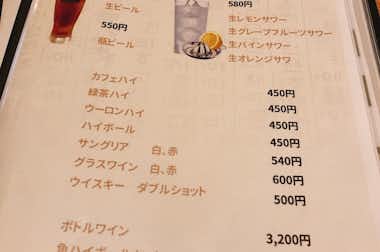 生ビール
550円
瓶ビール
580円
生レモンサワー
生グレープフルーツサワー
生パインサワー
生オレンジサワ
カフェハイ 450円
緑茶ハイ 450円
ウーロンハイ 450円
ハイボール 450円
サングリア 白、赤 540円
グラスワイン 白、赤 600円
ウイスキー ダブルショット 500円
ボトルワイン 3,200円
角ハイボール